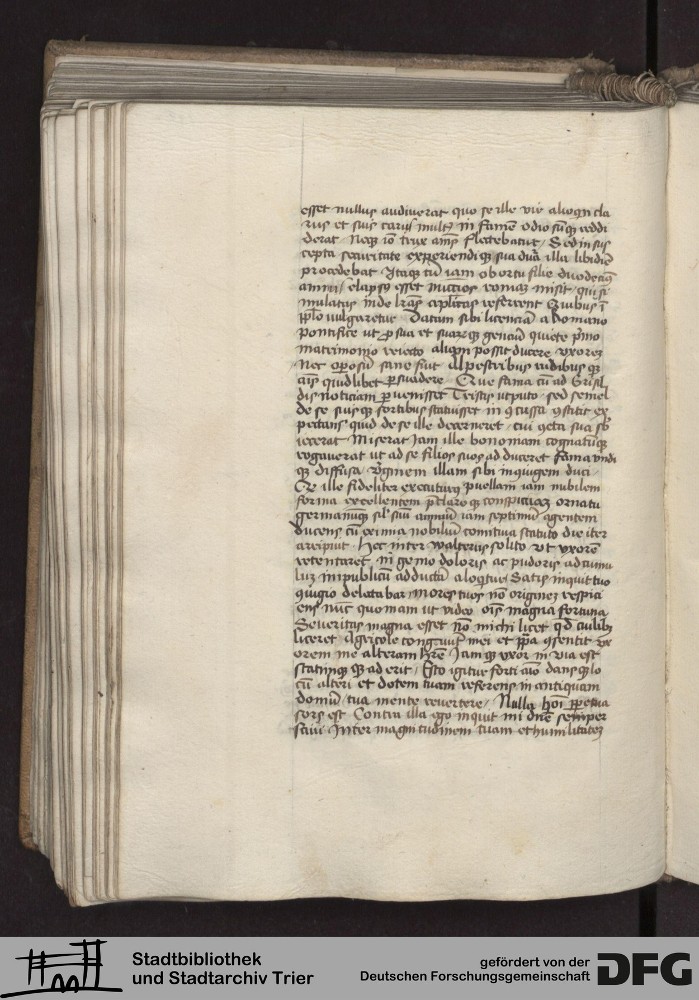 esset nullus audiverat quo se ille vir alioqn cla
rus et suis carus mult' in famē odio suōq reddi
derat Neq iō trux aīs flectebatur / Sed in sus
cepta severitate experiendiq sua dura illa libidie
procedebat Itaq cū iam ob ortu filie duodecimꝰ
annus elapsus esset nuccios romam misit qui si
mulatas inde lras aplicas referrent Quibus ī
pplo vulgaretur Datam sibi licenciā a Romano
pontifice ut p sua et suarūq genciū quiete prīo
matrimonio reiecto aliam possit ducere uxorem
Nec oposū sane fuit alpestribus rudibusq
aīs quidlibet persuadere Que fama cū ad Grisil
dis noticiam pervenisset Tristis ut puto sed semel
de se suisq sortibus statuisset inconcussa constitit ex
pectans quid de se ille decerneret cui cuncta sua sb
iecerat Miserat Jam ille bononiam cognatūq
rogaverat ut ad se filios suos ad duceret fama undi
q diffusa virginem illam sibi in iugem duci
Qd ille fideliter executurus puellam iam nubilem
forma excellentem preclaroq conspicuam ornatu
germanūq sil' suū annum iam septimū agentem
ducens cū eximia nobiliū comitiva statuto die iter
arripuit Hec inter walterius solito ut uxorē
retentaret ingenio doloris ac pudoris ad cumu
lum in publicū adducta aloqtur Satis inquit tuo
cōiugio delectabar mores tuos nō originem respici
ens nūc quoniam ut video oīs magna fortuna
Severitus magna esset nō michi licet qd cuilibet
liceret Agricole cogunt mei et ppa consentit ux
orem me alteram hrē Jamq uxor in via est
statimq ad erit / Esto igitur forti aīo dansq lo
cū alteri et dotem tuam referens in antiquam
domū tua mente revertere / Nulla hoī perpetua
sors est Contra illa ego inquit mi dne semper
scivi Inter magnitudinem tuam et humilitatem
Stadtbibliothek
und Stadtarchiv Trier
gefördert von der
Deutschen Forschungsgemeinschaft
DFG